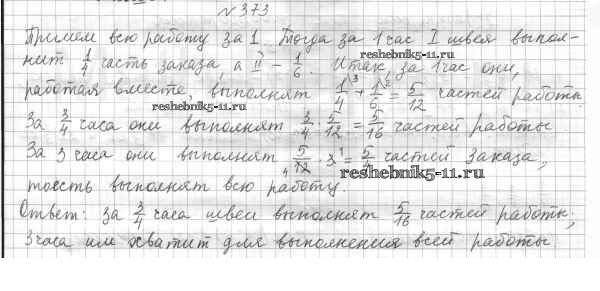 №373
Примем всю работу за 1. Тогда за 1 час I швея выпол-
нит 1/4 часть заказа а II - 1/6. Итак, за 1 час они,
reshebnik5-11.ru
работая вместе, выполнят 1/4 + 1/6 = 5/12 частей работы
reshebnik5-11.ru
За 3/4 часа они выполнят 3/4 · 5/12 = 5/16 частей работы.
За 3 часа они выполнят 5/12 · 3 = 5/4 частей заказа,
reshebnik5-11.ru
тоесть выполнят всю работу.
Ответ: за 3/4 часа швеи выполнят 5/16 частей работы;
3 часа им хватит для выполнения всей работы